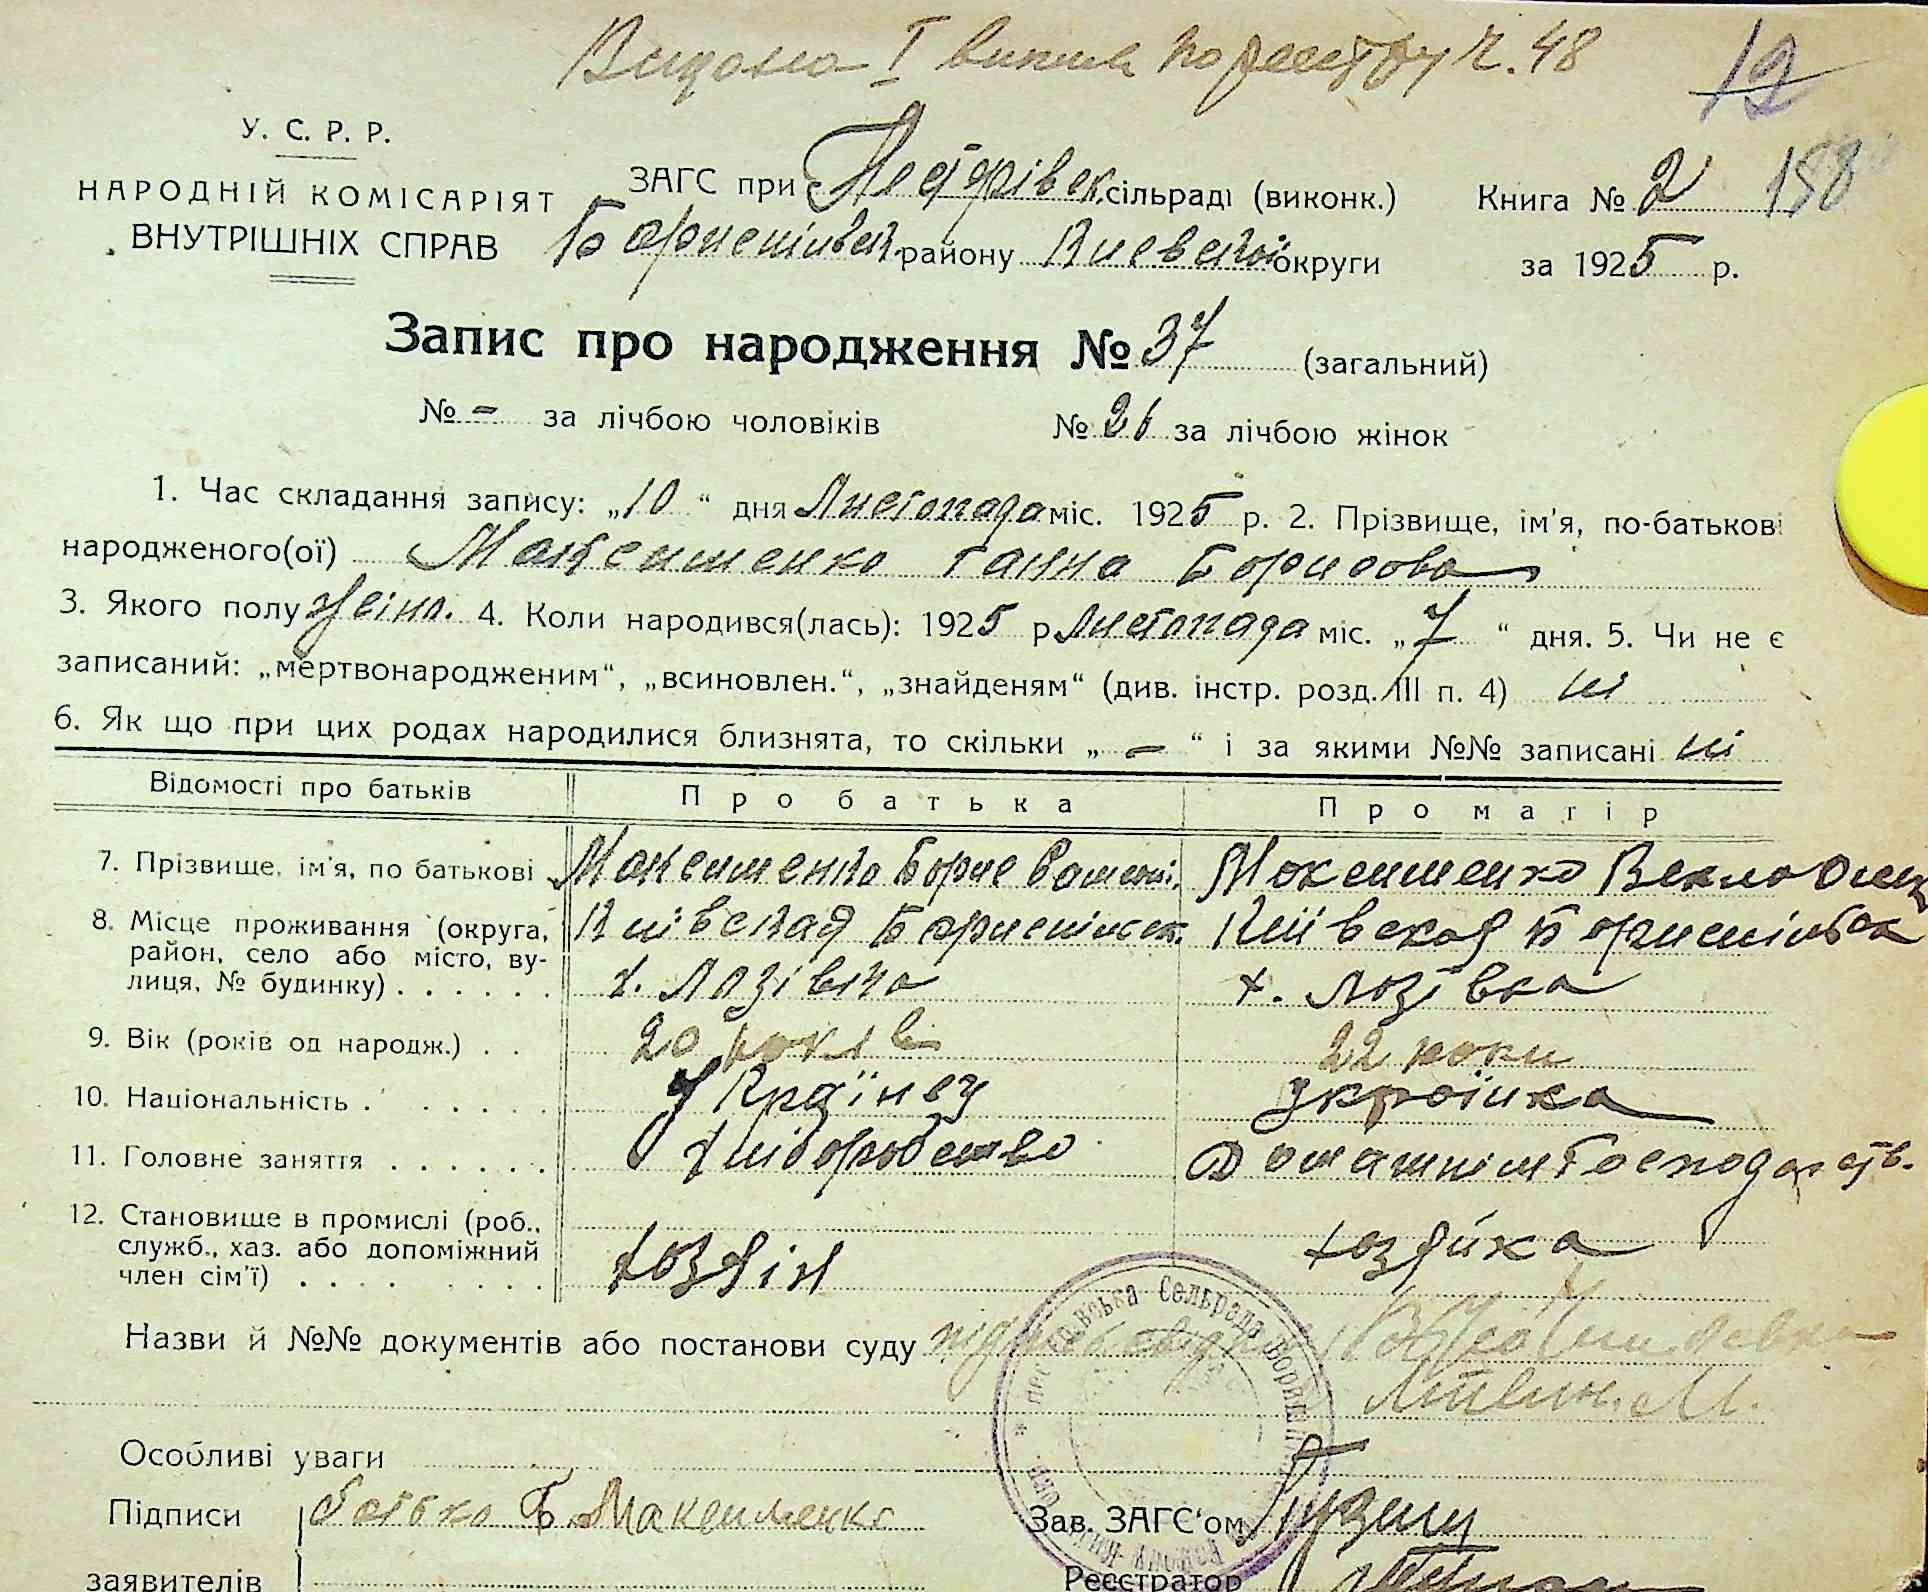 Видано І випис по реестру ч. 48
12
У. С. Р. Р.
НАРОДНІЙ КОМІСАРІЯТ
ВНУТРІШНІХ СПРАВ
ЗАГС при сільраді (виконк.)
Книга № 2 158
Бориспільск. району Киевской округи
за 1925 р.
Запис про народження № 37 (загальний)
№ - за лічбою чоловіків № 21 за лічбою жінок
1. Час складання запису: „10“ дня Листопада міс. 1925 р. 2. Прізвище, ім'я, по-батькові
народженого(ої) Максименко Ганна Борисова
3. Якого полу жіно. 4. Коли народився(лась): 1925 р Листопада міс. „7“ дня. 5. Чи не є
записаний: „мертвонародженим“, „всиновлен.“, „знайденям“ (див. інстр. розд. III п. 4) ні
6. Як що при цих родах народилися близнята, то скільки „ - “ і за якими №№ записані ні
Відомості про батьків Про батька Про матір
7. Прізвище, ім'я, по батькові Максименко Борис Максименко Векла
8. Місце проживання (округа, район, село або місто, вулиця, № будинку) . . . . . .
Київская Бориспільск. х. Лозівка
Київская Бориспільск х. Лозівка
9. Вік (років од народж.) . . 20 років 22 роки
10. Національність . . . . . . . Українец українка
11. Головне заняття . . . . . . хліборобство Домашнім господарств.
12. Становище в промислі (роб., служб., хаз. або допоміжний член сім'ї) . . . . . . . . хозяін хозяйка
Назви й №№ документів або постанови суду
Літвин. М.
Особливі уваги
Підписи батько Б. Максименко
Зав. ЗАГС'ом
заявителів
Реєстратор
Сельрада